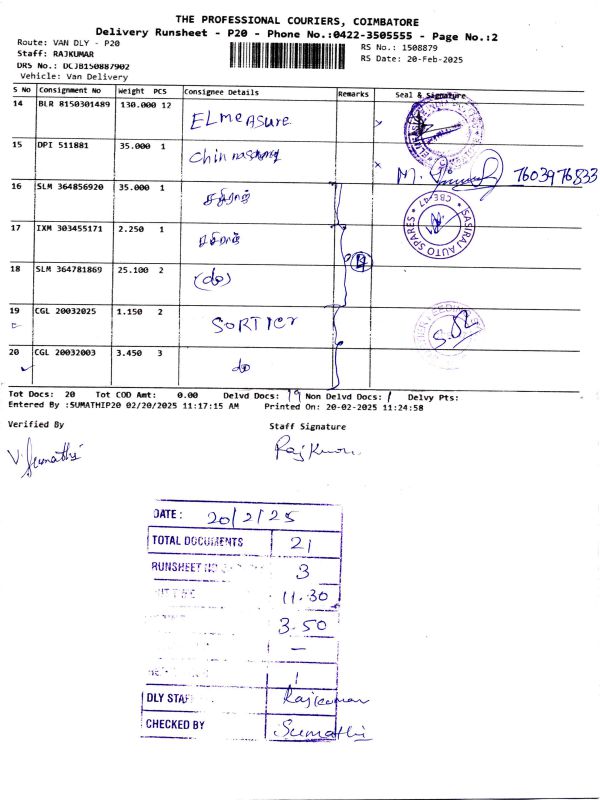 THE PROFESSIONAL COURIERS, COIMBATORE
Delivery Runsheet - P20 - Phone No.:0422-3505555 - Page No.:2
Route: VAN DLY - P20
Staff: RAJKUMAR
DRS No.: DCJB150887902
Vehicle: Van Delivery
RS No.: 1508879
RS Date: 20-Feb-2025
S No Consignment No Weight PCS Consignee Details Remarks Seal & Signature
14 BLR 8150301489 130.000 12 ELmeAsure
15 DPI 511881 35.000 1
M. 7603976833
16 SLM 364856920 35.000 1
17 IXM 303455171 2.250 1
SASIRAJ AUTO SPARES * CBE-47 *
18 SLM 364781869 25.100 2 (do)
19 CGL 20032025 1.150 2 SORTIer
20 CGL 20032003 3.450 3 do
Tot Docs: 20 Tot COD Amt: 0.00 Delvd Docs: 19 Non Delvd Docs: 1 Delvy Pts:
Entered By :SUMATHIP20 02/20/2025 11:17:15 AM Printed On: 20-02-2025 11:24:58
Verified By Staff Signature
V. Sumathi Rajkumar
DATE: 20/2/25
TOTAL DOCUMENTS 21
RUNSHEET 3
11.30
3.50
-
1
DLY STAF Rajkumar
CHECKED BY Sumathi